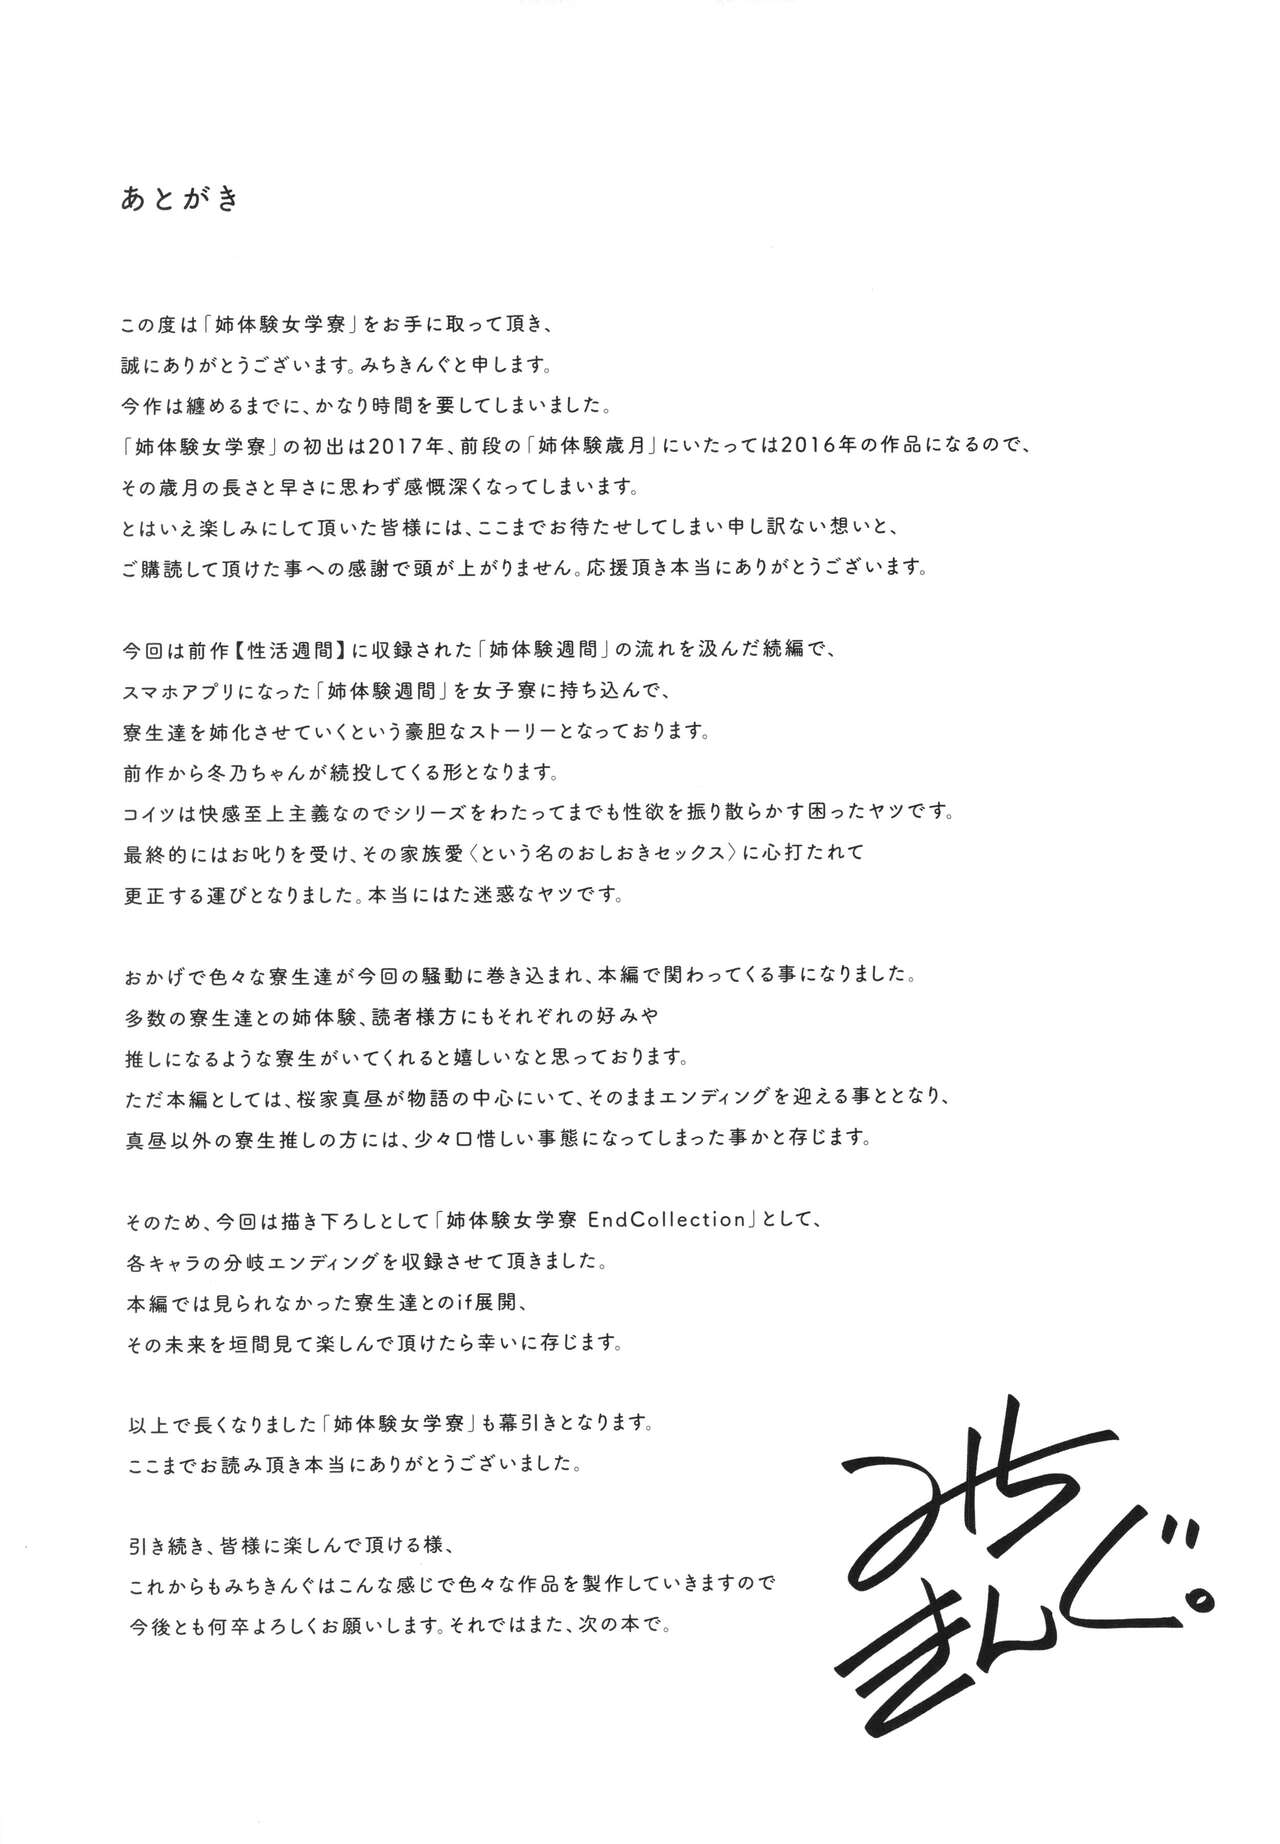 あとがき
この度は「姉体験女学寮」をお手に取って頂き、
誠にありがとうございます。みちきんぐと申します。
今作は纏めるまでに、かなり時間を要してしまいました。
「姉体験女学寮」の初出は2017年、前段の「姉体験歳月」にいたっては2016年の作品になるので、
その歳月の長さと早さに思わず感慨深くなってしまいます。
とはいえ楽しみにして頂いた皆様には、ここまでお待たせしてしまい申し訳ない想いと、
ご購読して頂けた事への感謝で頭が上がりません。応援頂き本当にありがとうございます。
今回は前作【性活週間】に収録された「姉体験週間」の流れを汲んだ続編で、
スマホアプリになった「姉体験週間」を女子寮に持ち込んで、
寮生達を姉化させていくという豪胆なストーリーとなっております。
前作から冬乃ちゃんが続投してくる形となります。
コイツは快感至上主義なのでシリーズをわたってまでも性欲を振り散らかす困ったヤツです。
最終的にはお叱りを受け、その家族愛〈という名のおしおきセックス〉に心打たれて
更正する運びとなりました。本当にはた迷惑なヤツです。
おかげで色々な寮生達が今回の騒動に巻き込まれ、本編で関わってくる事になりました。
多数の寮生達との姉体験、読者様方にもそれぞれの好みや
推しになるような寮生がいてくれると嬉しいなと思っております。
ただ本編としては、桜家真昼が物語の中心にいて、そのままエンディングを迎える事ととなり、
真昼以外の寮生推しの方には、少々口惜しい事態になってしまった事かと存じます。
そのため、今回は描き下ろしとして「姉体験女学寮 EndCollection」として、
各キャラの分岐エンディングを収録させて頂きました。
本編では見られなかった寮生達とのif展開、
その未来を垣間見て楽しんで頂けたら幸いに存じます。
以上で長くなりました「姉体験女学寮」も幕引きとなります。
ここまでお読み頂き本当にありがとうございました。
引き続き、皆様に楽しんで頂ける様、
これからもみちきんぐはこんな感じで色々な作品を製作していきますので
今後とも何卒よろしくお願いします。それではまた、次の本で。
みち
きんぐ。